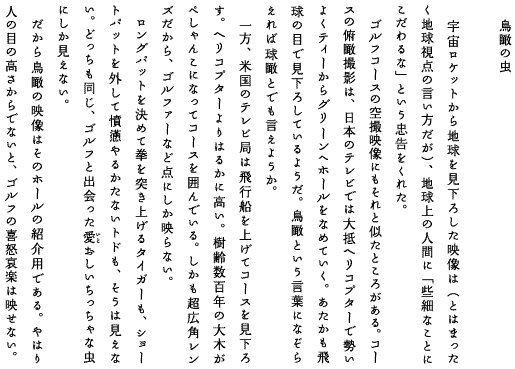 鳥瞰の虫
宇宙ロケットから地球を見下ろした映像は（とはまった
く地球視点の言い方だが）、地球上の人間に「些細なことに
こだわるな」という忠告をくれた。
ゴルフコースの空撮映像にもそれと似たところがある。コー
スの俯瞰撮影は、日本のテレビでは大抵ヘリコプターで勢い
よくティーからグリーンへホールをなめていく。あたかも飛
球の目で見下ろしているようだ。鳥瞰という言葉になぞら
えれば球瞰とでも言えようか。
一方、米国のテレビ局は飛行船を上げてコースを見下ろ
す。ヘリコプターよりはるかに高い。樹齢数百年の大木が
ぺしゃんこになってコースを囲んでいる。しかも超広角レン
ズだから、ゴルファーなど点にしか映らない。
ロングパットを決めて拳を突き上げるタイガーも、ショー
トパットを外して憤懣やるかたないトドも、そうは見えな
い。どっちも同じ、ゴルフと出会った愛おしいちっちゃな虫
にしか見えない。
だから鳥瞰の映像はそのホールの紹介用である。やはり
人の目の高さからでないと、ゴルフの喜怒哀楽は映せない。